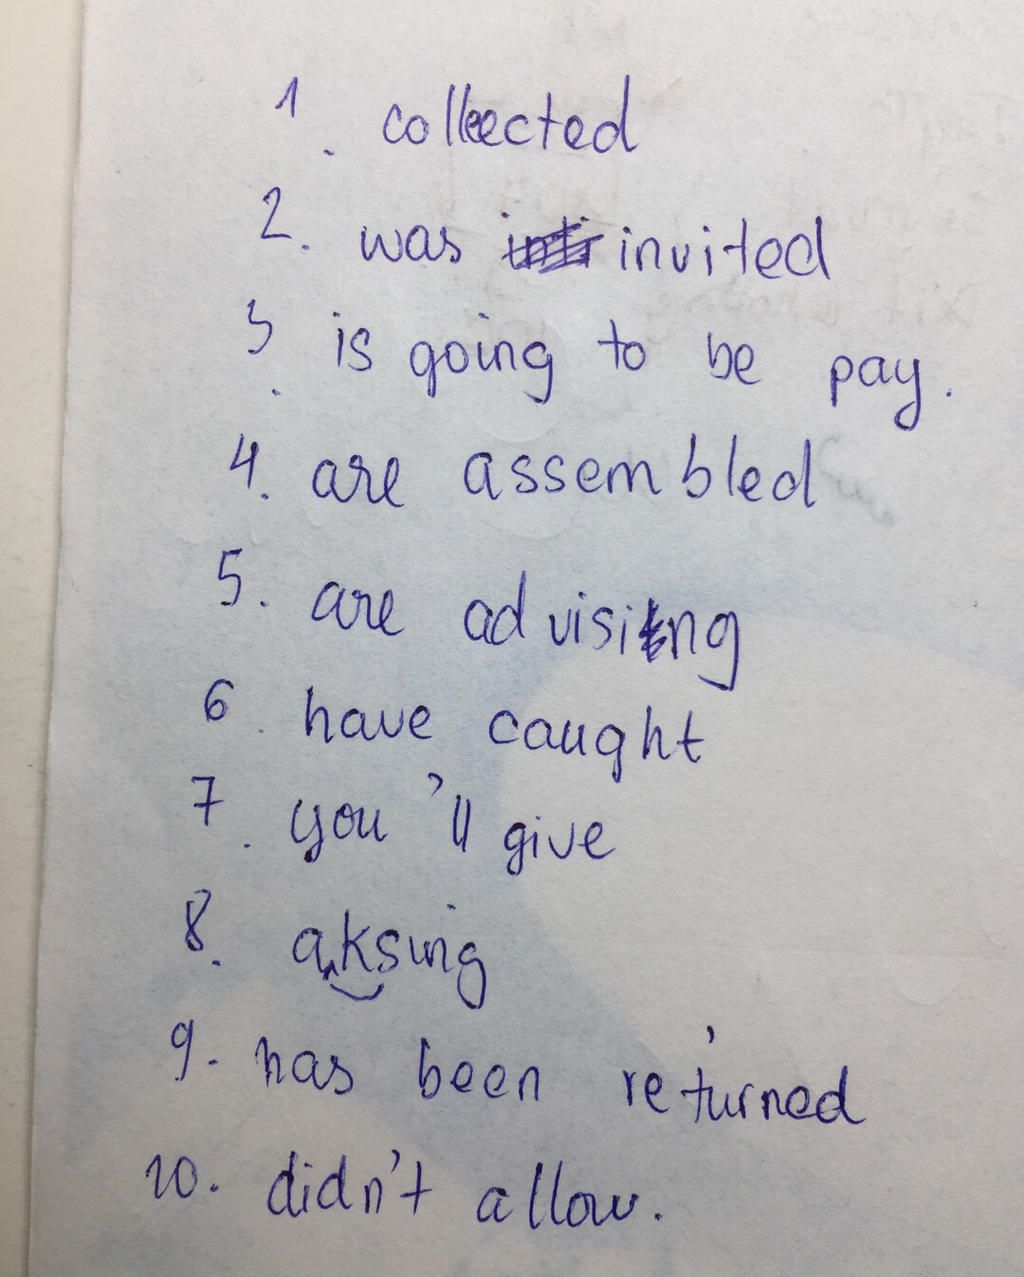 1. collected
2. was invited
3. is going to be pay.
4. are assembled
5. are advising
6. have caught
7. you'll give
8. aksing
9. has been returned
10. didn't allow.